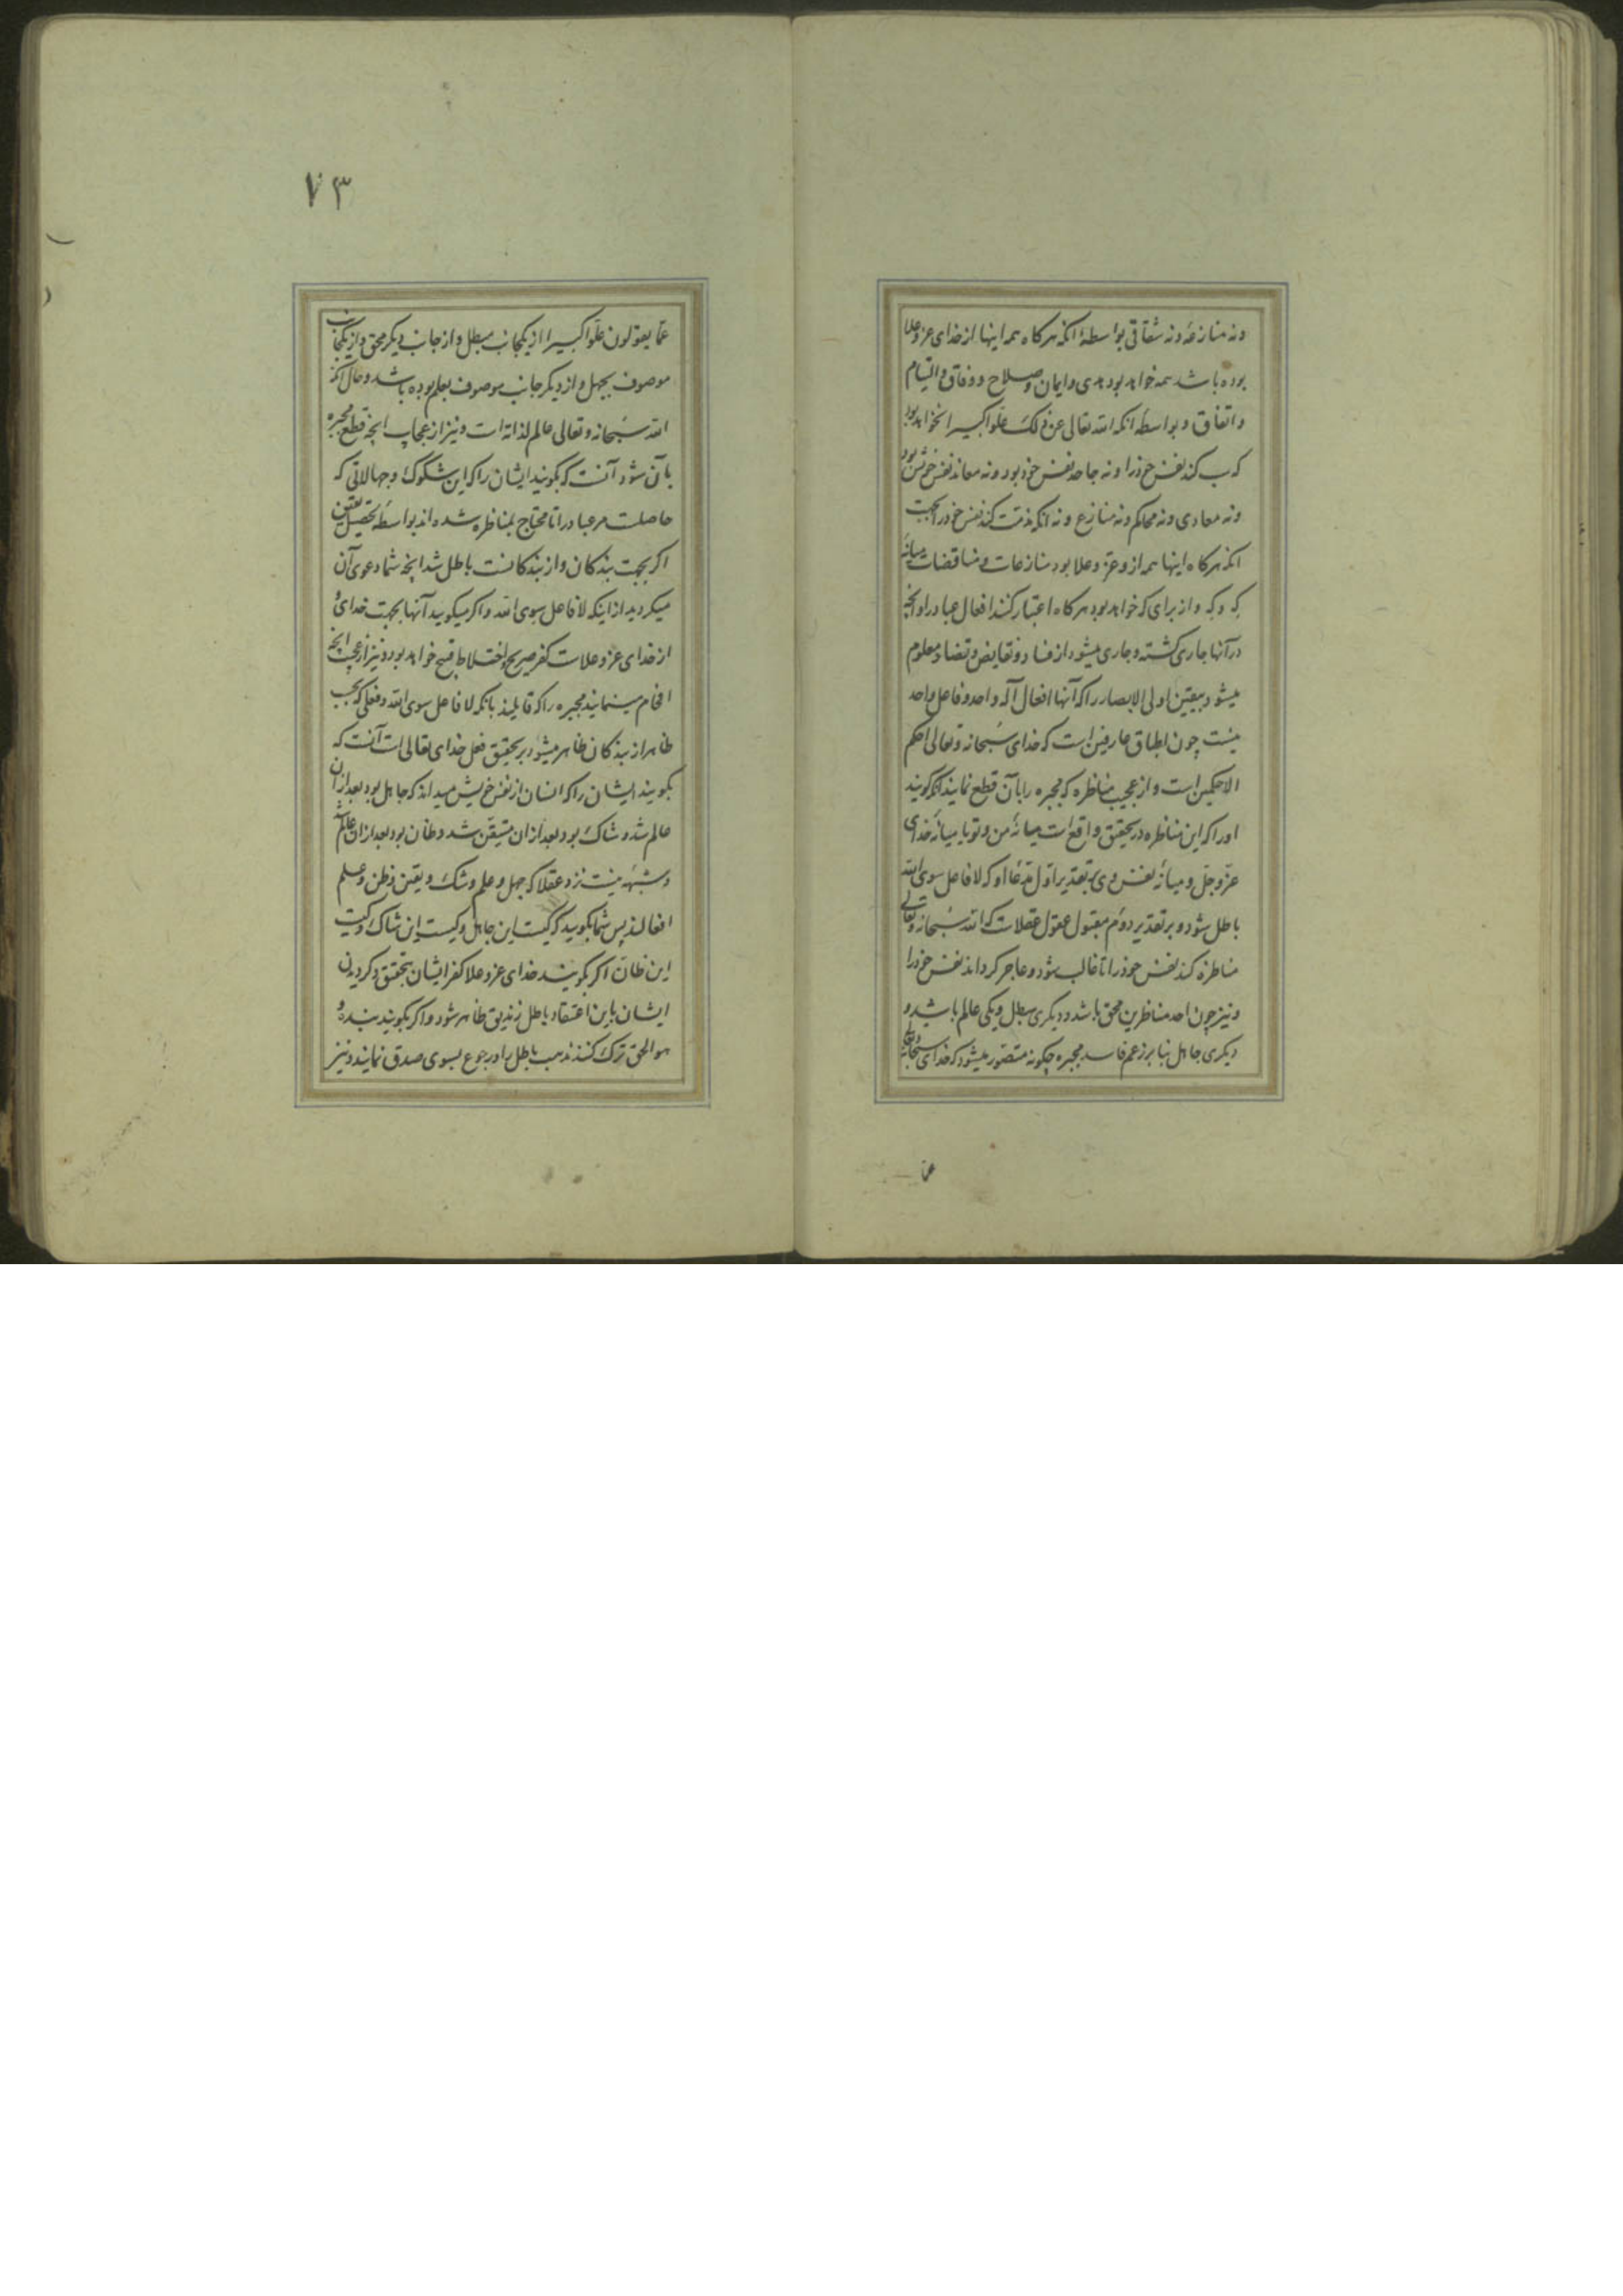 ونه منازعه ونه شقاقی بواسطهٔ انکه هرکاه همه اینها از خدای عز وعلا
بوده باشد همه خواهد بود هدی وایمان وصلاح ووفاق والتیام
واتفاق وبواسطه انکه الله تعالی عن ذلک علوا کبیرا نخواهد بود
که سب کند نفس خود را ونه جاحد نفس خود بود ونه معاند نفس خویش بود
ونه معادی ونه محاکم ونه منازع ونه انکه مذمت کند نفس خود را بجهت
انکه هرکاه اینها همه از و عز وعلا بود منازعات ومناقضات میانه
که وکه واز برای که خواهد بود هرکاه اعتبار کنند افعال عباد را وانچه
در آنها جاری کشته وجاری میشود از فساد ونقایض وتضاد معلوم
میشود بیقین اولی الابصار را که آنها افعال آله واحد وفاعل واحد
نیست چون اطباق عارفین است که خدای سبحانه وتعالی احکم
الاحکمین است واز عجیب مناظره که مجبره را بآن قطع نمایند آنکه کویند
اورا که این مناظره در تحقیق واقع است میانهٔ من وتو یا میانهٔ خدای
عز وجل ومیانهٔ نفس وی بر تقدیر اول مدعا او که لا فاعل سوی الله
باطل شود وبر تقدیر دوم مقبول عقول عقلاست که الله سبحانه وتعالی
مناظره کند نفس خود را تا غالب شود وعاجز کرداند نفس خود را
ونیز چون احد مناظرین محق باشد ودیکری مبطل ویکی عالم باشد و
دیکری جاهل بنا بر زعم فاسد مجبره چکونه متصور میشود که خدای سبحانه وتعالی
عما
۷۳
عما یقولون علوا کبیرا از یکجانب مبطل واز جانب دیکر محق واز یکجانب
موصوف بجهل واز دیکر جانب موصوف بعلم بوده باشد وحال آنکه
الله سبحانه وتعالی عالم لذاته است ونیز از عجایب انچه قطع مجبره
بآن شود آنست که بکویند ایشان را که این شکوک وجهالاتی که
حاصلت مر عباد را تا محتاج بمناظره شده اند بواسطه تحصیل یقین
اکر بجهت بندکان واز بندکانست باطل شد انچه شما دعوی آن
میکردید از اینکه لا فاعل سوی الله واکر میکویید آنها بجهت خدای و
از خدای عز وعلاست کفر صریح واختلاط قبیح خواهد بود ونیز از عجب انچه
افحام مینمایند مجبره را که قایلند بانکه لا فاعل سوی الله وفعلی که بحسب
ظاهر از بندکان ظاهر میشود بر تحقیق فعل خدای تعالی است آنست که
بکویند ایشان را که انسان از نفس خویش میداند که جاهل بود بعد از آن
عالم شد وشاک بود بعد از ان متیقن شد وظان بود بعد از ان عالم شد
وشبهه نیست نزد عقلا که جهل وعلم وشک ویقین وظن وعلم
افعالند پس شما بکویید که کیست این جاهل وکیست این شاک وکیست
این ظان اکر بکویند خدای عز وعلا کفر ایشان بتحقق وکردیدن
ایشان باین اعتقاد باطل زندیق ظاهر شود واکر بکویند بنده و
هو الحق ترک کنند مذهب باطل را ورجوع بسوی صدق نمایند ونیز